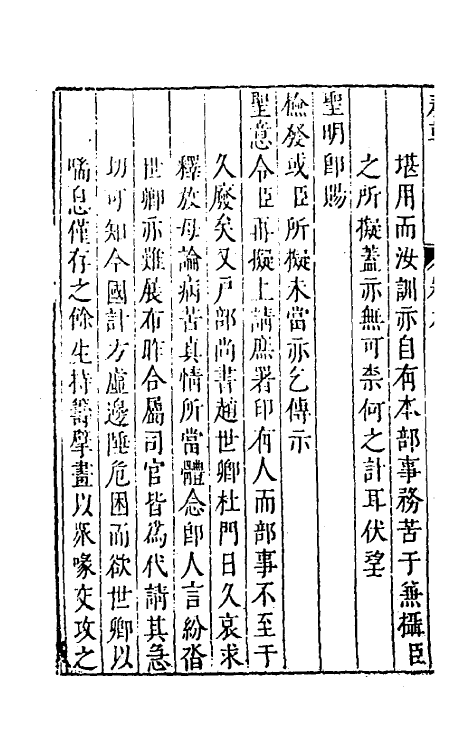 堪用而汝訓亦自有本部事務苦于兼攝臣
之所擬蓋亦無可柰何之計耳伏望
聖明卽賜
檢發或臣所擬未當亦乞傳示
聖意令臣再擬上請庶署印有人而部事不至于
久廢矣又戶部尚書趙世卿杜門日久哀求
釋放毋論病苦真情所當體念卽人言紛沓
世卿亦難展布昨合屬司官皆爲代請其急
切可知今國計方虛邊陲危困而欲世卿以
喘息僅存之餘生持籌擘畫以衆喙交攻之